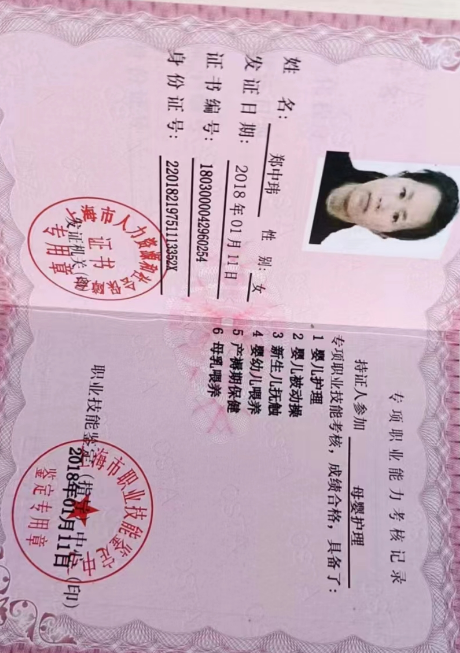 姓 名：郑中玮 性 别：女
发证日期：2018 年 01 月 11 日
证书编号：1803000042960254
身份证号：22018219751113352X
海市人力资源和社会保障
发证机关（印）
证书
专用章
专项职业能力考核记录
持证人参加 母婴护理
专项职业技能考核，成绩合格，具备了：
1 婴儿护理
2 婴儿被动操
3 新生儿抚触
4 婴幼儿喂养
5 产褥期保健
6 母乳喂养
职业技能鉴定（指导）中心（印）
海市职业技能鉴定中
2018年01月11日
鉴定专用章